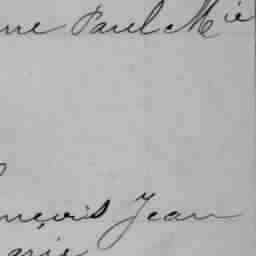 ne Paul Mie
nçois Jean
arie